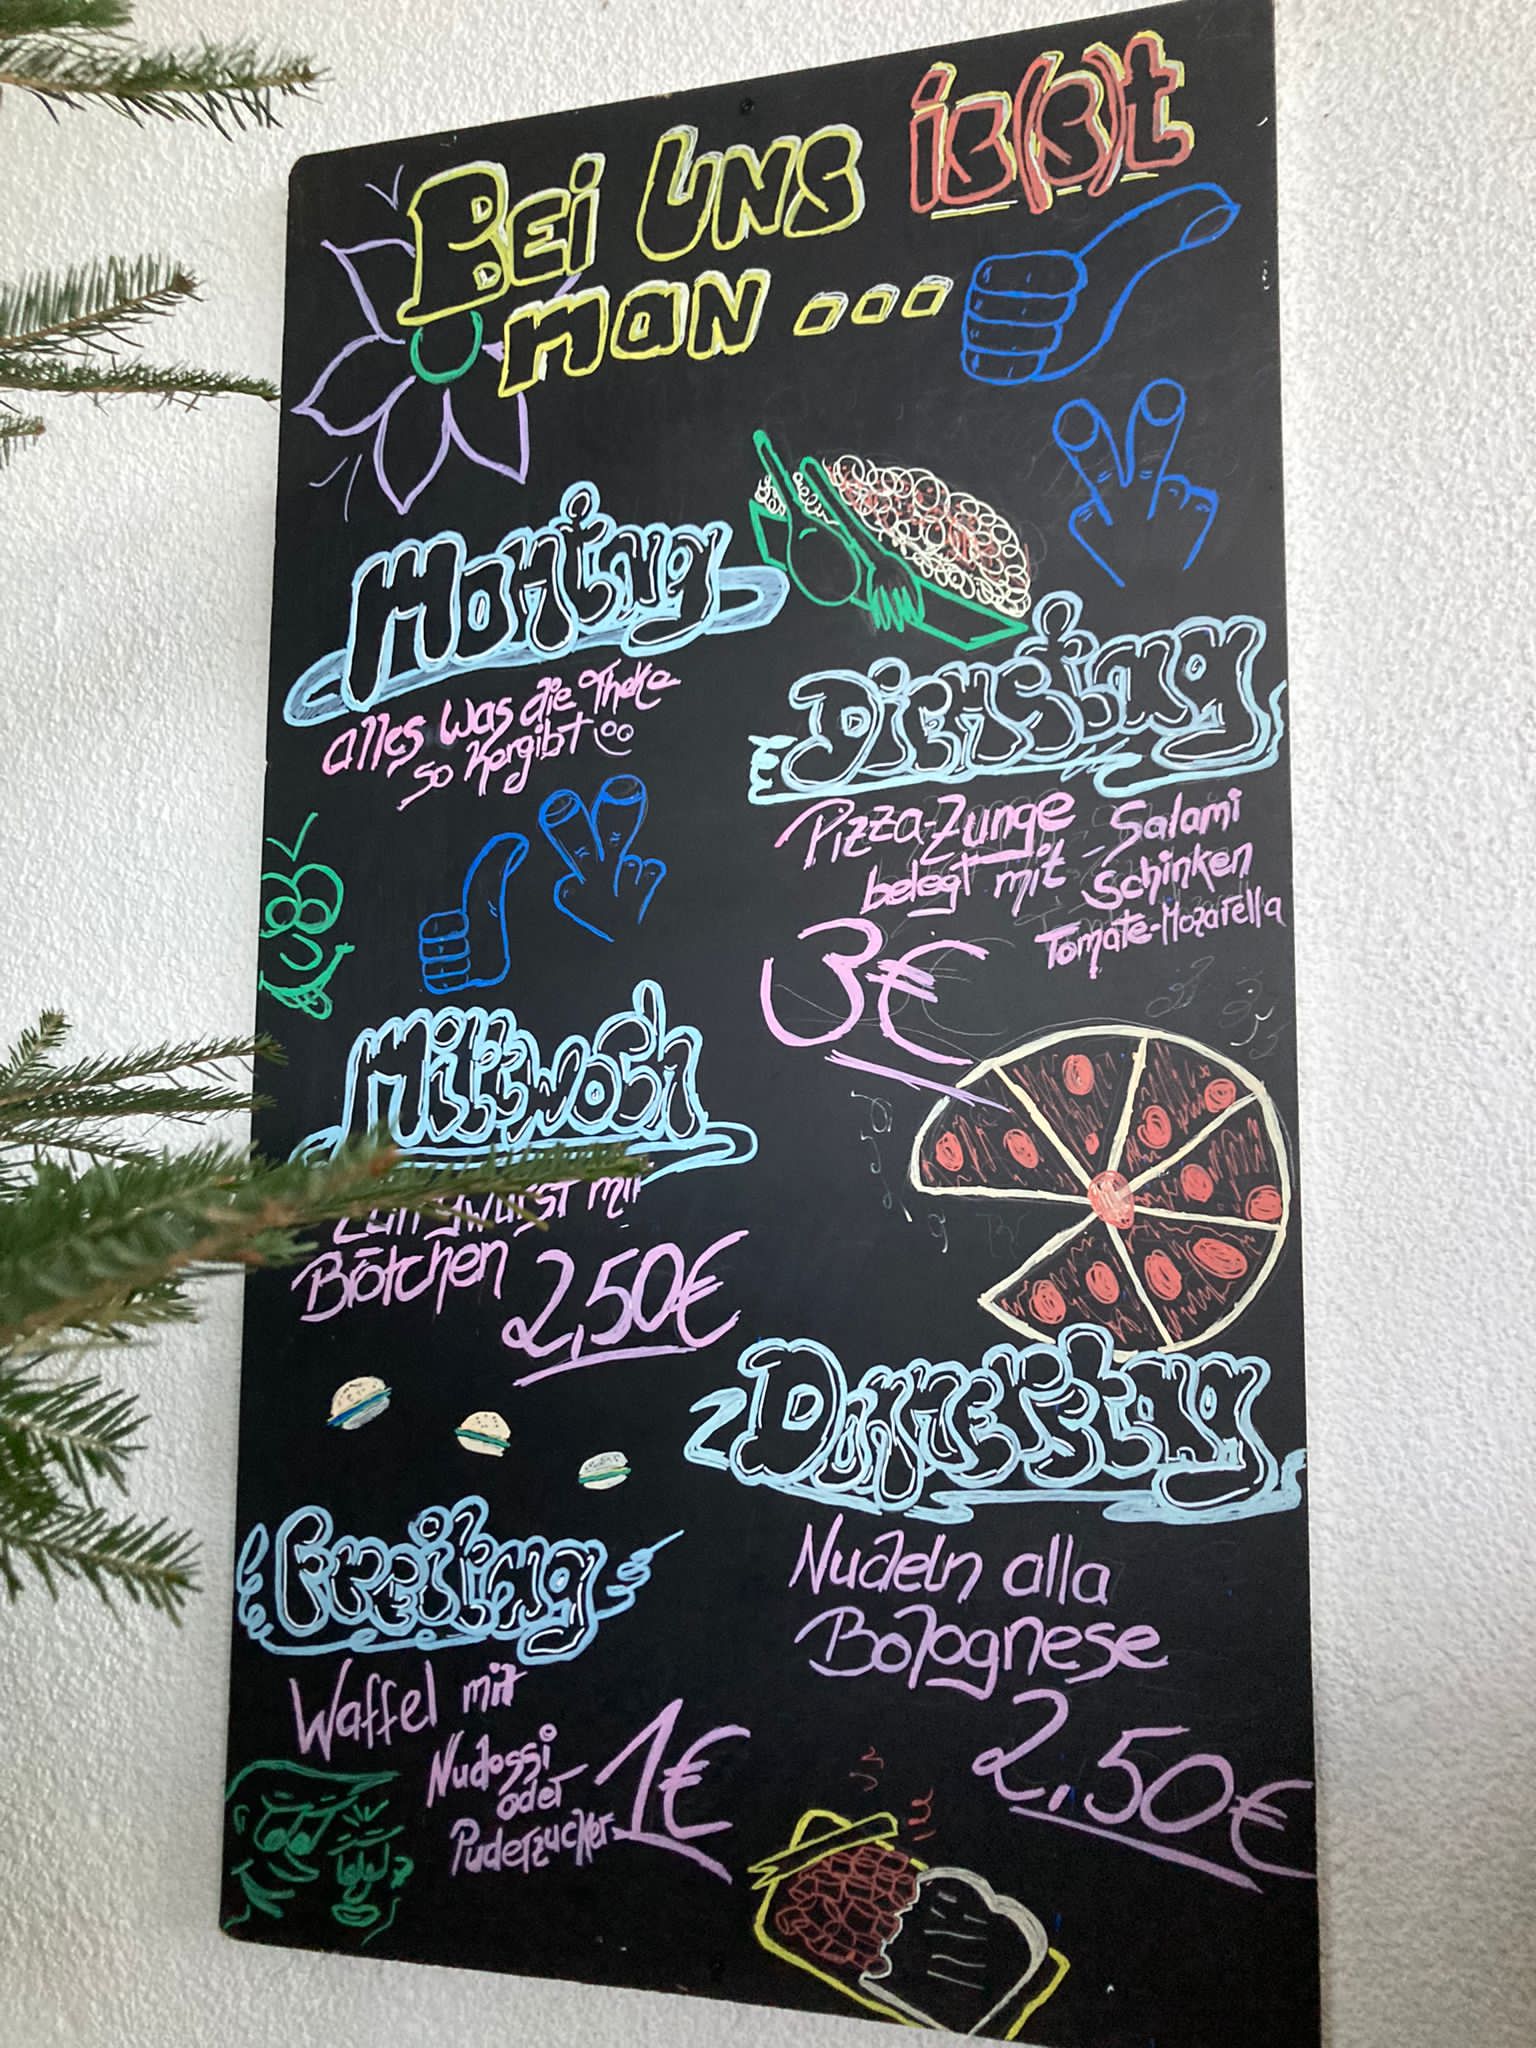 Bei uns is(s)t
man ...
Montag
alles was die Theke
so hergibt
Dienstag
Pizza-Zunge
belegt mit - Salami
Schinken
Tomate-Mozarella
3€
Mittwoch
mit
Brötchen
2,50€
Donnerstag
Nudeln alla
Bolognese
2,50€
Freitag
Waffel mit
Nudossi
oder
Puderzucker
1€